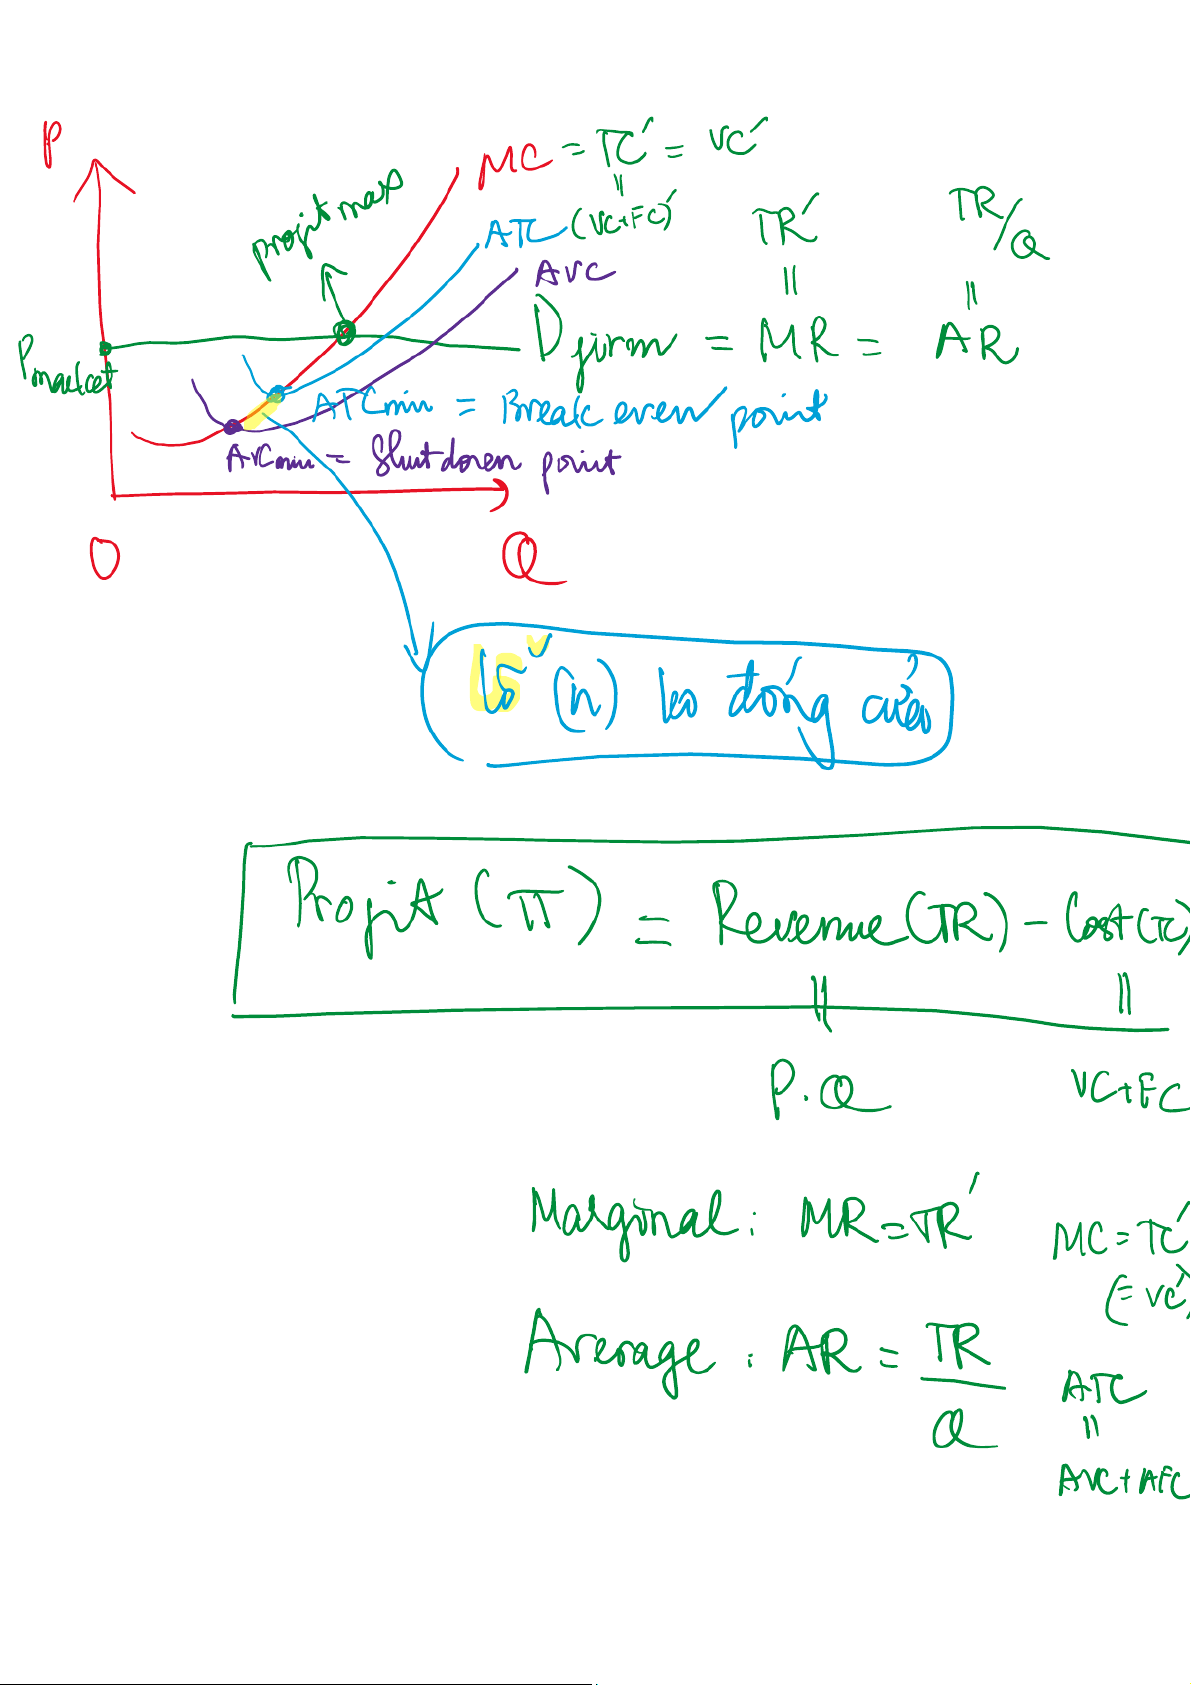 P
MC = TC' = VC'
=
(VC+FC)'
ATC
AVC
profit max
TR'
=
TR/Q
=
P market
D firm = MR = AR
ATC min = Break even point
AVC min = Shut down point
O
Q
lỗ (n) ko đóng cửa
Profit (π) = Revenue (TR) - Cost (TC)
= =
P.Q VC+FC
Marginal : MR = TR' MC = TC'
(= VC')
Average : AR = TR/Q
ATC
=
AVC + AFC